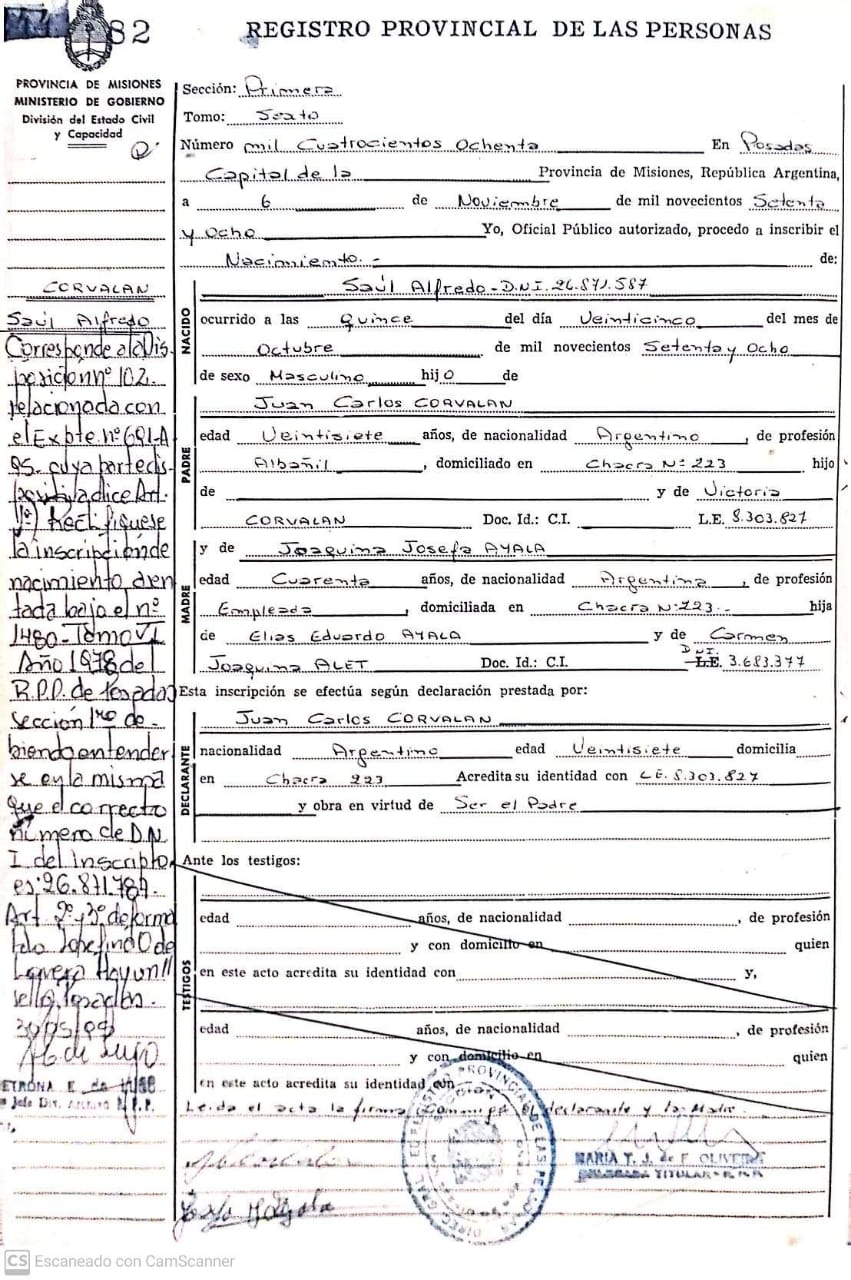 82
REGISTRO PROVINCIAL DE LAS PERSONAS
PROVINCIA DE MISIONES
MINISTERIO DE GOBIERNO
División del Estado Civil
y Capacidad
CORVALAN
Saúl Alfredo
Corresponde a la Dis-
posición nº 102
relacionada con
el Expte nº 691-A
95. cuya parte dis-
positiva dice Art.
1º) Rectifíquese
la inscripción de
nacimiento asen
tada bajo el nº
1480-Tomo VI
Año 1978 del
R.P.P. de Posadas
Sección 1ra de-
biendo entender
se en la misma
que el correcto
número de D.N.
I. del inscripto
es: 26.871.787.
Art 2º y 3º de forma
Fdo Josefina O de
sello, Posadas.
PETRONA E. de
Jefe Div. Archivo R.P.P.
Sección: Primera
Tomo: Sexto
Número mil Cuatrocientos Ochenta En Posadas
Capital de la Provincia de Misiones, República Argentina,
a 6 de Noviembre de mil novecientos Setenta
y Ocho Yo, Oficial Público autorizado, procedo a inscribir el
Nacimiento.- de:
NACIDO
Saúl Alfredo - D.N.I. 26.871.587
ocurrido a las Quince del día Veinticinco del mes de
Octubre de mil novecientos Setenta y Ocho
de sexo Masculino hijO de
PADRE
Juan Carlos CORVALAN
edad Veintisiete años, de nacionalidad Argentino, de profesión
Albañil, domiciliado en Chacra Nº 223 hijo
de y de Victoria
CORVALAN Doc. Id.: C.I. L.E. 8.303.827
MADRE
y de Joaquina Josefa AYALA
edad Cuarenta años, de nacionalidad Argentina, de profesión
Empleada, domiciliada en Chacra Nº 223.- hija
de Elias Eduardo AYALA y de Carmen
Joaquina ALET Doc. Id.: C.I. L.E. DNI. 3.683.377
Esta inscripción se efectúa según declaración prestada por:
DECLARANTE
Juan Carlos CORVALAN
nacionalidad Argentino edad Veintisiete domicilia
en Chacra 223 Acredita su identidad con LE. 8.303.827
y obra en virtud de Ser el Padre
Ante los testigos:
TESTIGOS
edad años, de nacionalidad , de profesión
y con domicilio en quien
en este acto acredita su identidad con y,
edad años, de nacionalidad , de profesión
y con domicilio en quien
en este acto acredita su identidad con
Leída el acta la firma Conmigo el declarante y la Madre.
MARIA T. J. de F. OLIVEIRA
DELEGADA TITULAR - R.P.P.
CS Escaneado con CamScanner